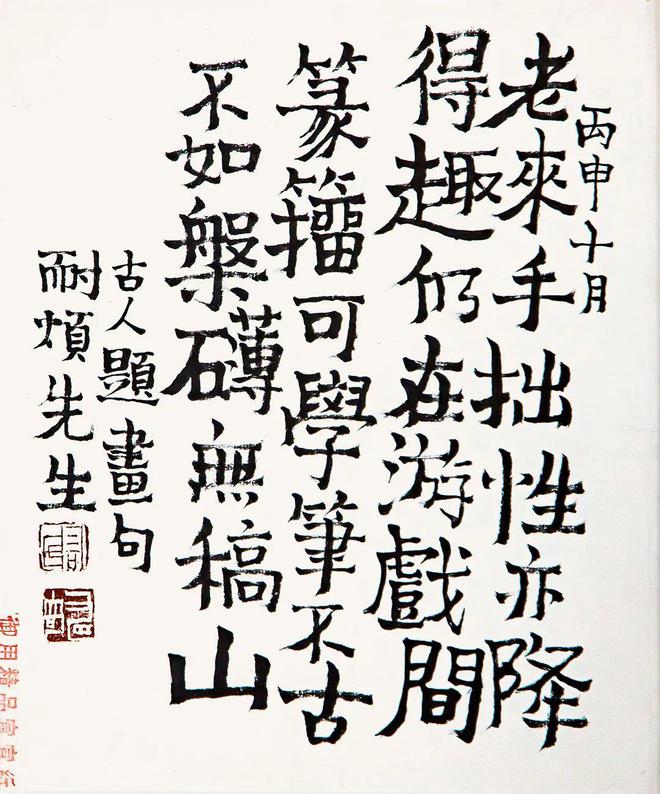 丙申十月
老來手拙性亦降
得趣仍在游戲間
篆籀可學筆不古
不如槃礴無稿山
古人題畫句
耐煩先生